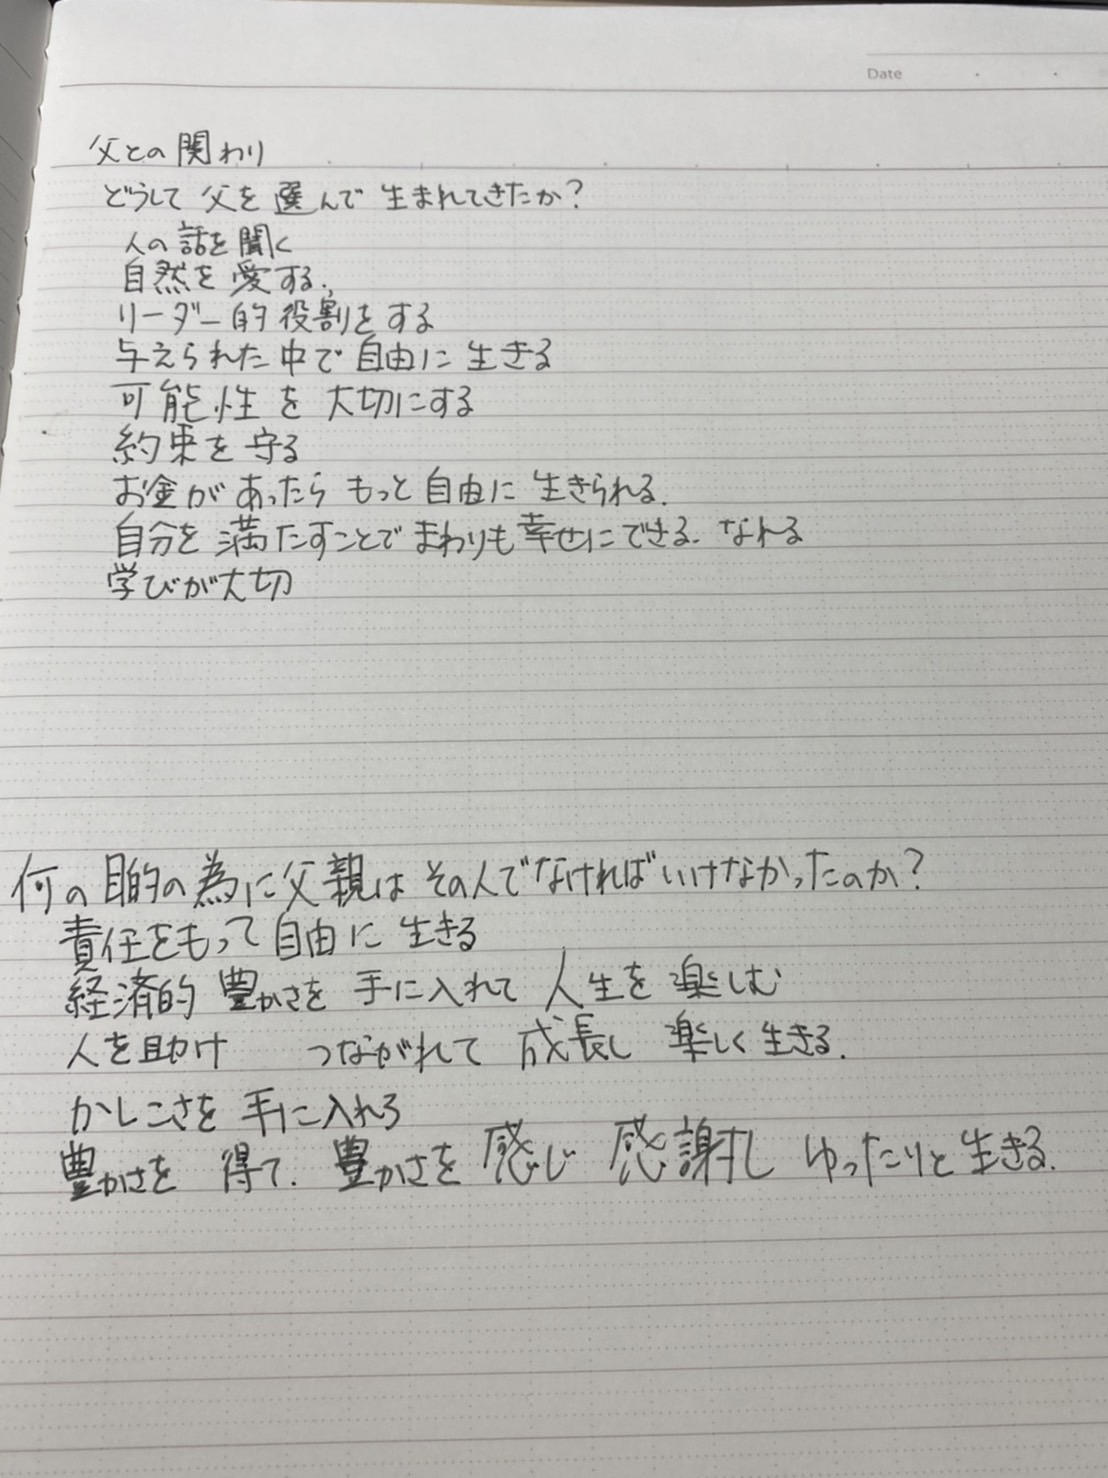 Date
父との関わり
どうして父を選んで生まれてきたか?
人の話を聞く
自然を愛する、
リーダー的役割をする
与えられた中で自由に生きる
可能性を大切にする
約束を守る
お金があったらもっと自由に生きられる.
自分を満たすことでまわりも幸せにできる.なれる
学びが大切
何の目的の為に父親はその人でなければいけなかったのか?
責任をもって自由に生きる
経済的豊かさを手に入れて人生を楽しむ
人を助け つながれて成長し 楽しく生きる.
かしこさを手に入れろ
豊かさを得て.豊かさを感じ 感謝し ゆったりと生きる.